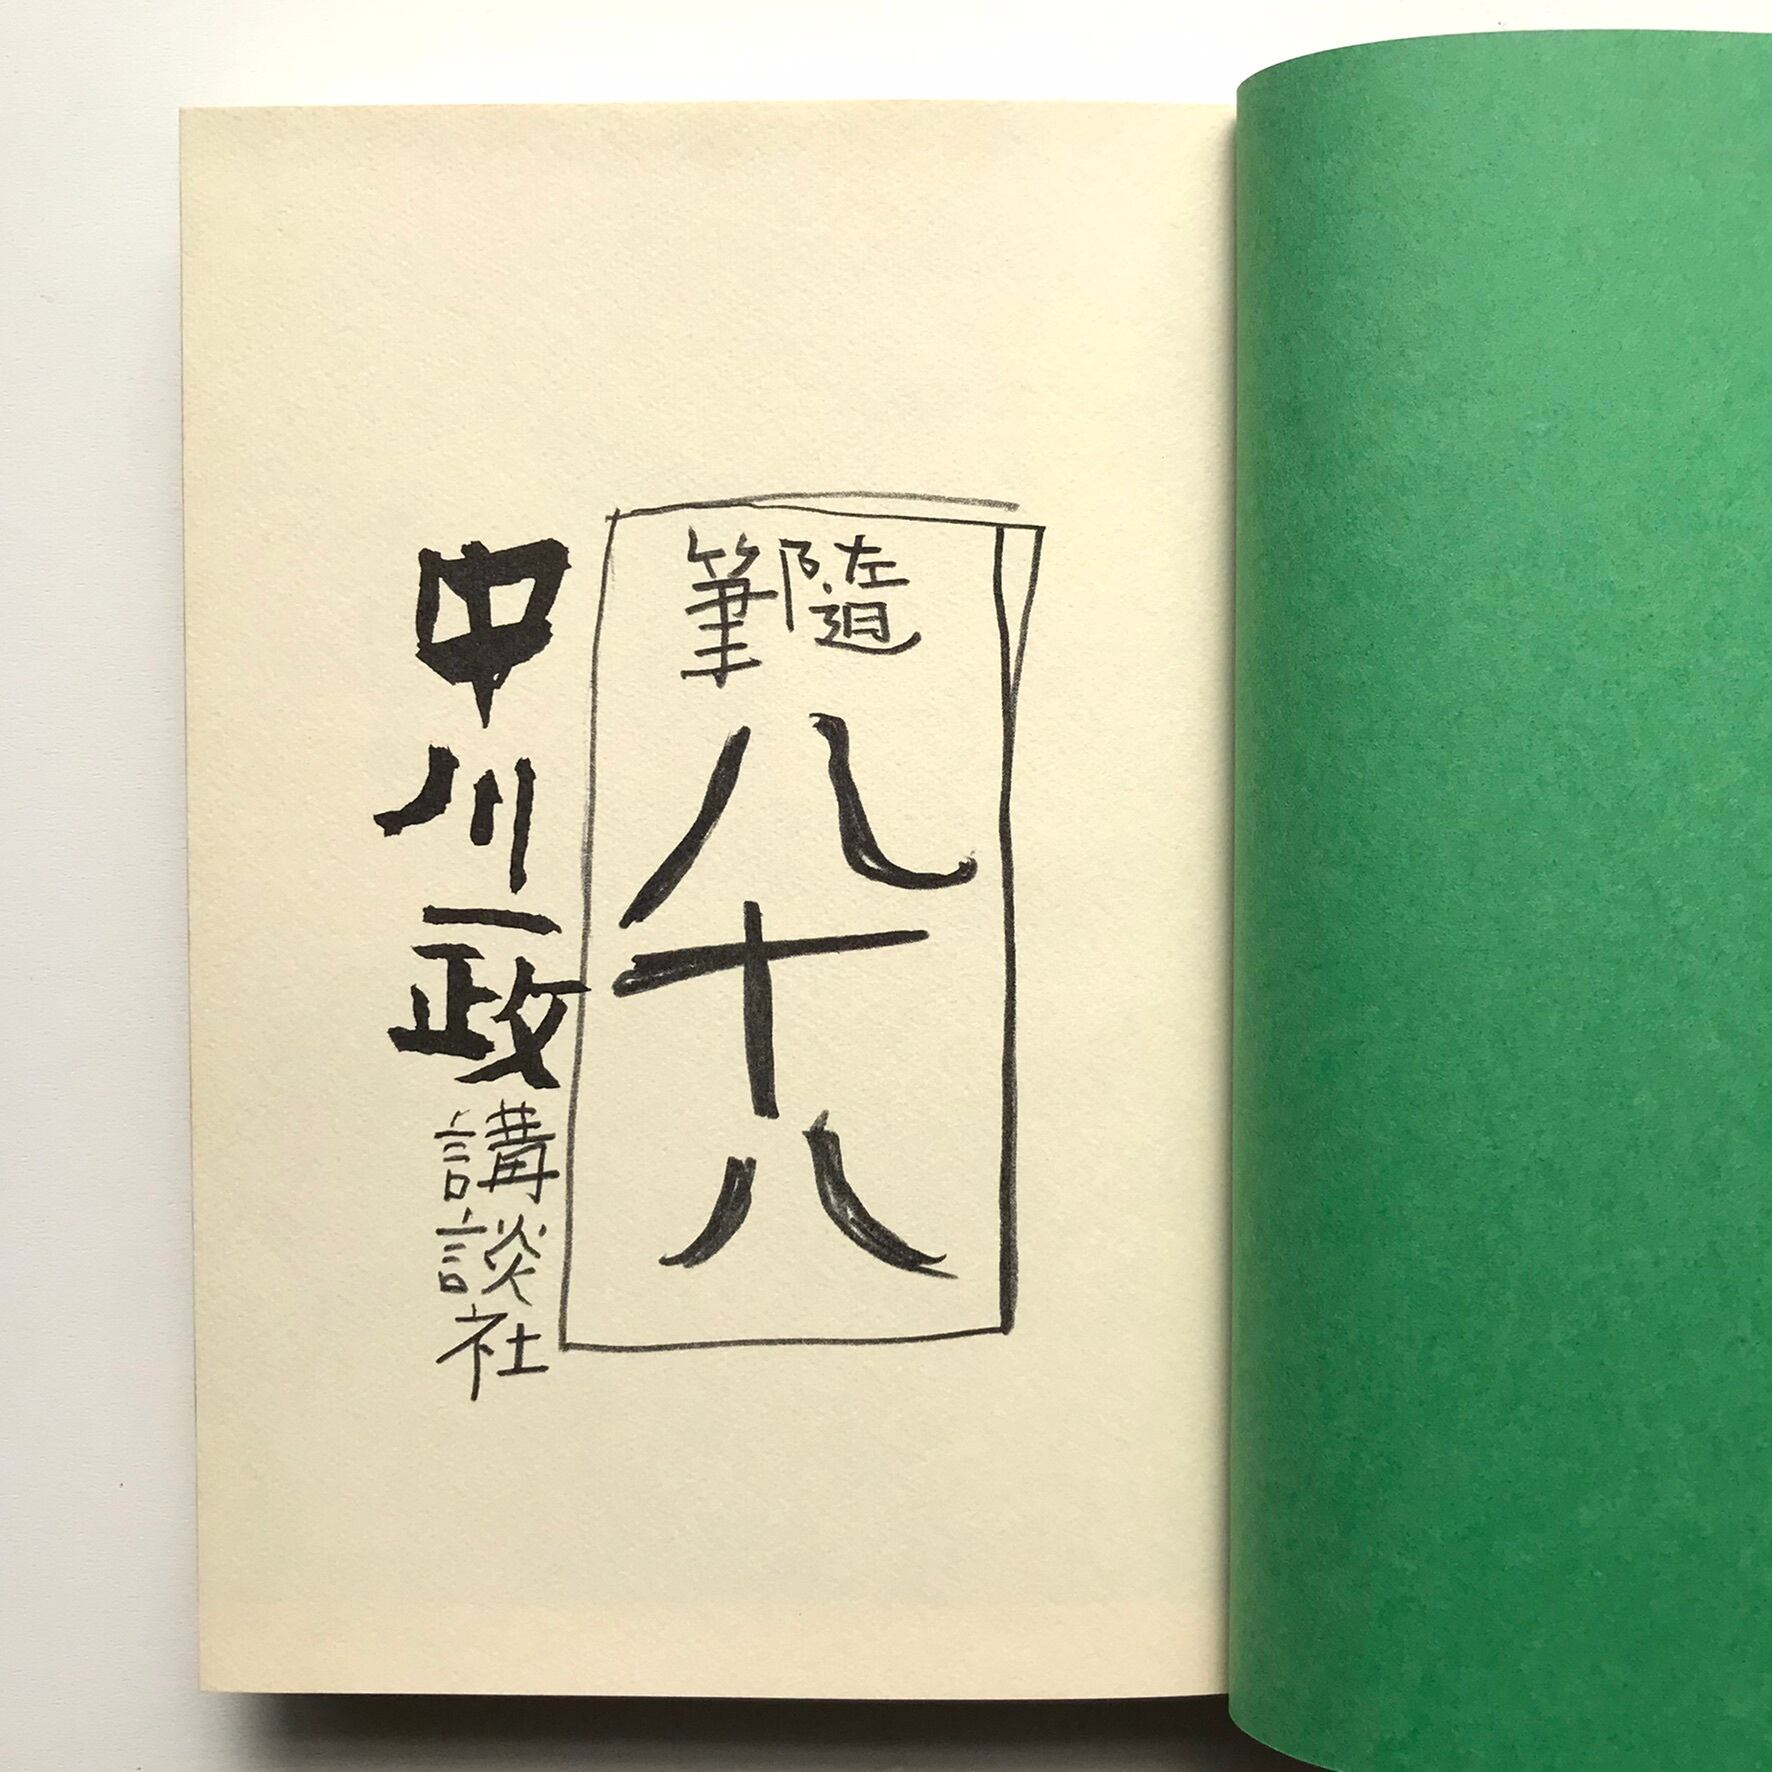 隨筆
八十八
中川一政
講談社